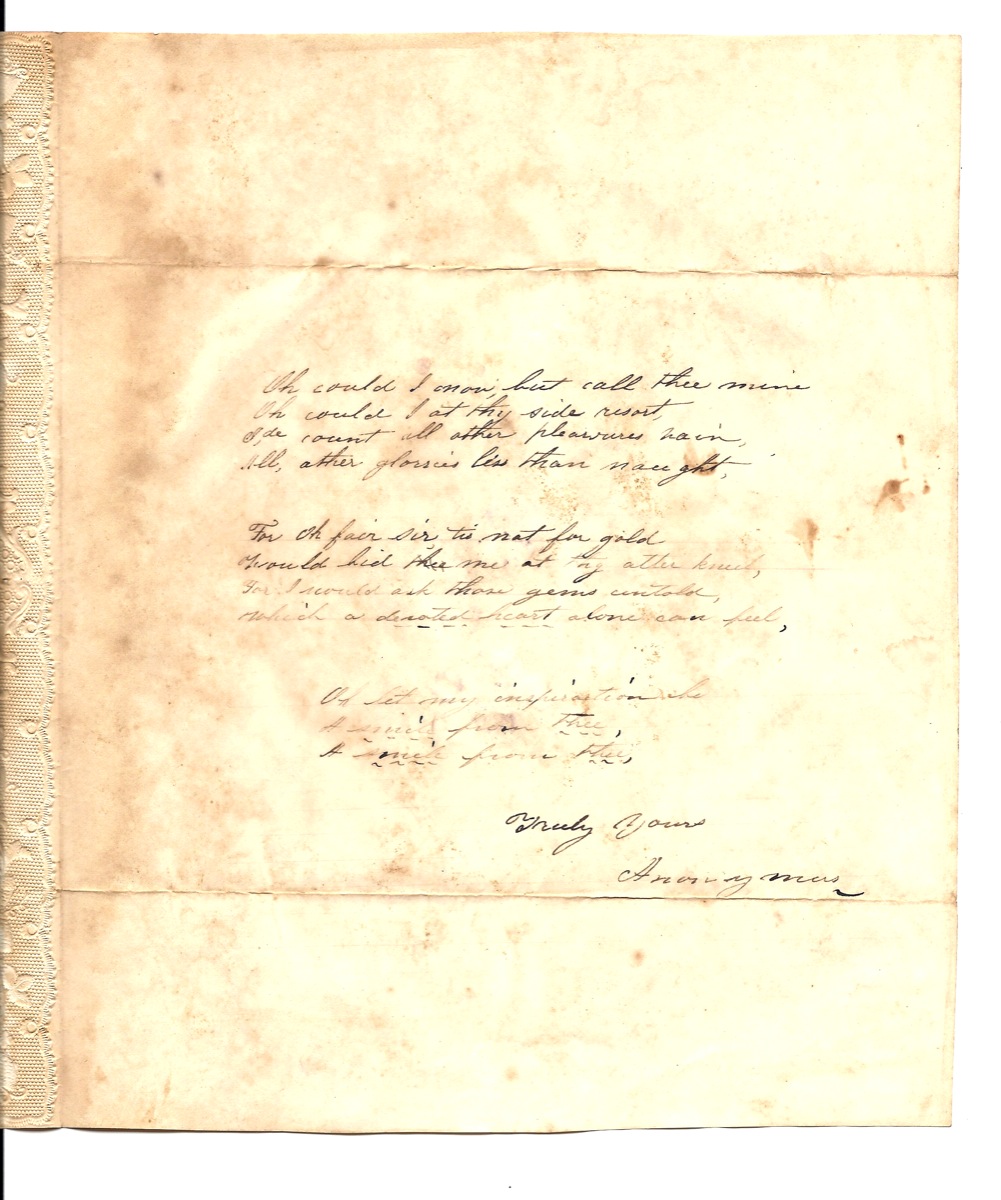 Oh could I now, but call thee mine
Oh could I at thy side resort,
I,de count all other pleasures vain,
All, other glories less than naught,
For Oh fair sir tis not for gold
Would bid me at thy alter kneel,
For I would ask those gems untold,
which a devoted heart alone can feel,
Oh let my inspiration be
A smile from thee,
A smile from thee,
Truly Yours
Anonymus